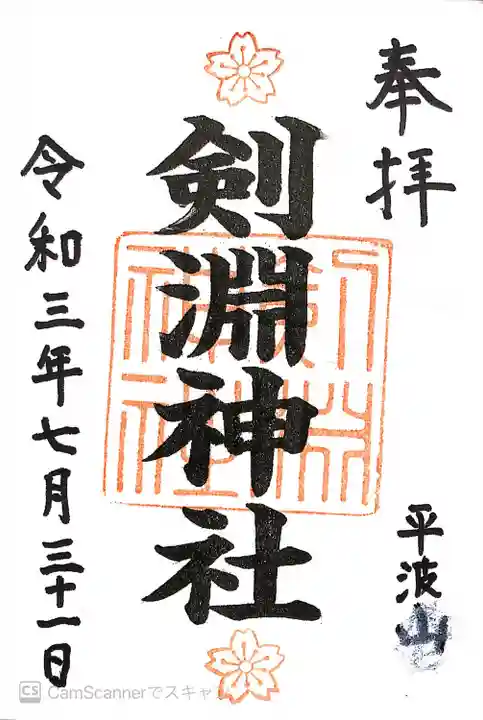 奉拝
平波山
剣淵神社
令和三年七月三十一日
CS CamScannerでスキャ